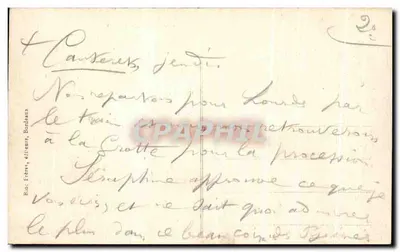 + Cauterets, jeudi.
Nous repartons pour Lourdes par
le train et retrouverons
à la Grotte pour la procession
Séraphine approuve ce que je
vous dis, et ne sait quoi admirer
le plus dans ce beau coin des
CPARAMA
Frères, éditeurs, Bordeaux
2